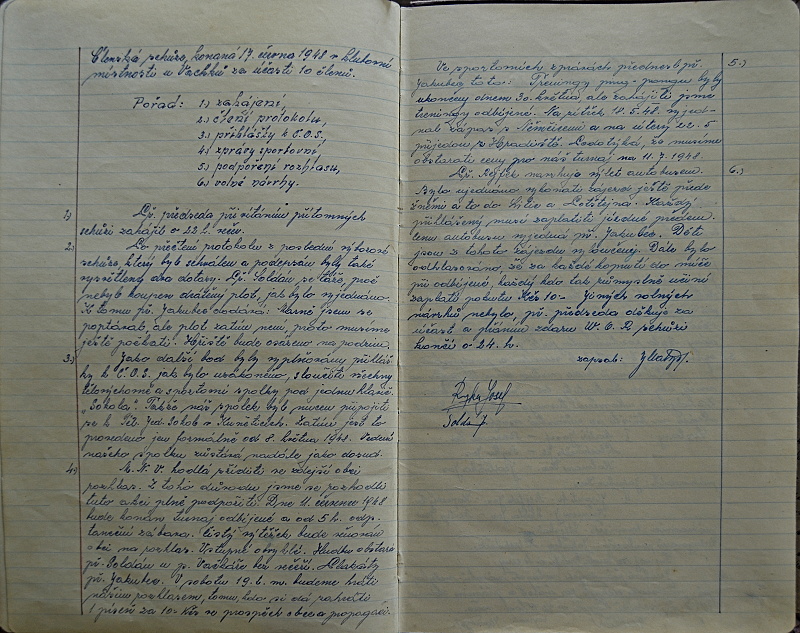 Členská schůze, konaná 17. června 1948 v klubovní
místnosti u Vachků za účasti 10 členů.
Pořad: 1.) zahájení,
2.) čtení protokolu,
3.) přihlášky k Č.O.S.
4.) zprávy sportovní
5.) podpoření rozhlasu,
6.) volné návrhy.
1.) Př. předseda při vítáním přítomných
schůzi zahájil o 22 h. več.
2.) Po přečtení protokolu z poslední výborové
schůze, který byl schválen a podepsán byly také
vysvětleny dva dotazy. Př. Soldán se táže, proč
nebylo koupeno drátěný plot, jak bylo ujednáno.
K tomu př. Jakubec dodává: Marně jsem se
poptával, ale plot zatím není, proto musíme
ještě počkati. Hřiště bude oseto na podzim.
3.) Jako další bod byly vyplňovány přihláš-
ky k Č.O.S. jak bylo uzákoněno, sloučiti všechny
tělovýchovné a sportovní spolky pod jednu hlavič.
"Sokola". Takže náš spolek byl nucen připojiti
se k Těl. Jed. Sokol v Kuněticích. Zatím jest to
provedeno jen formálně od 8. května 1948. Vedení
našeho spolku zůstává nadále jako dosud.
4.) M. N. V. hodlá zříditi ve zdejší obci
rozhlas. Z toho důvodu jsme se rozhodli
tuto akci plně podpořiti. Dne 11. července 1948
bude konán turnaj odbíjené a od 5 h. odp.
taneční zábava. Čistý výtěžek bude věnován
obci na rozhlas. Vstupné obvyklé. Hudbu obstará
př. Soldán u p. Vaškáře bez večeří. Plakáty
př. Jakubec. V sobotu 19. t. m. budeme hráti
naším rozhlasem, tomu kdo si dá zahráti
1 píseň za 10.- Kčs ve prospěch obce a propagaci.
Ve sportovních zprávách přednesl př. 5.)
Jakubec toto: Tréningy ping-pongu byly
ukončeny dnem 30. května, ale zahájili jsme
tréningy odbíjené. Na pátek 18.5.48. ujed-
nal zápas s Němčicemi a na úterý 22.5
přijedou z Hradiště. Podotýká, že musíme
obstarati ceny pro náš turnaj na 11.7.1948.
Př. navrhuje výlet autobusem. 6.)
Bylo ujednáno vykonati zájezd ještě přede
žněmi a to do a Letětína. Každý
přihlášený musí zaplatiti jízdné předem.
Cenu autobusu vyjedná př. Jakubec. Děti
jsou z tohoto zájezdu vyloučeny. Dále bylo
odhlasováno, že za každé kopnutí do míče
při odbíjené, každý kdo tak úmyslně učiní
zaplatí pokutu Kčs 10.- Jiných volných
návrhů nebylo, př. předseda děkuje za
účast a přáním zdaru W. C. R. schůzi
končí o 24. h.
zapsal:
Josef
Soldán J.